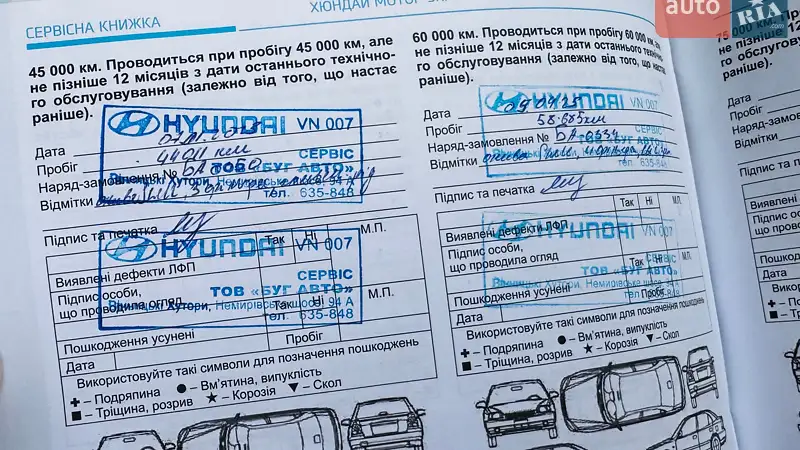 СЕРВІСНА КНИЖКА
ХЮНДАЙ МОТОР
auto
RIA
.com
45 000 км. Проводиться при пробігу 45 000 км, але
не пізніше 12 місяців з дати останнього технічно-
го обслуговування (залежно від того, що настає
раніше).
HYUNDAI VN 007
Дата
Пробіг 44011 км
СЕРВІС
Наряд-замовлення №
ТОВ «БУГ АВТО»
Вінницькі Хутори, Немирівське шосе, 94 А
Відмітки
тел. 635-848
Підпис та печатка
HYUNDAI VN 007
Так Ні М.П.
Виявлені дефекти ЛФП
СЕРВІС
Підпис особи,
що проводила огляд
ТОВ «БУГ АВТО»
Вінницькі Хутори, Немирівське шосе, 94 А
тел. 635-848
Так Ні М.П.
Пошкодження усунені
Дата
Пробіг
Використовуйте такі символи для позначення пошкоджень
– Подряпина – Вм'ятина, випуклість
– Тріщина, розрив – Корозія – Скол
60 000 км. Проводиться при пробігу 60 000 км, але
не пізніше 12 місяців з дати останнього технічно-
го обслуговування (залежно від того, що настає
раніше).
HYUNDAI VN 007
Дата
Пробіг 58685 км
СЕРВІС
Наряд-замовлення №
ТОВ «БУГ АВТО»
Відмітки
635-848
Підпис та печатка
HYUNDAI VN 007
Так Ні М.П.
Виявлені дефекти ЛФП
СЕРВІС
Підпис особи,
що проводила огляд
ТОВ «БУГ АВТО»
Вінницькі Хутори, Немирівське шосе, 94 А
тел. 635-848
Так Ні М.П.
Пошкодження усунені
Дата
Пробіг
Використовуйте такі символи для позначення пошкоджень
– Подряпина – Вм'ятина, випуклість
– Тріщина, розрив – Корозія – Скол
75 000
не пізніше 1
го обслугову
раніше).
Дата
Пробіг
Наряд-замовл
Відмітки
Підпис та п
Виявлені
Підпис о
що пров
Пошкод
Дата
Викор
– По
– Тр